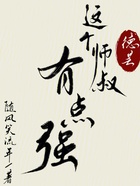 德芸
这个师叔
有点强
随风笑流年 著